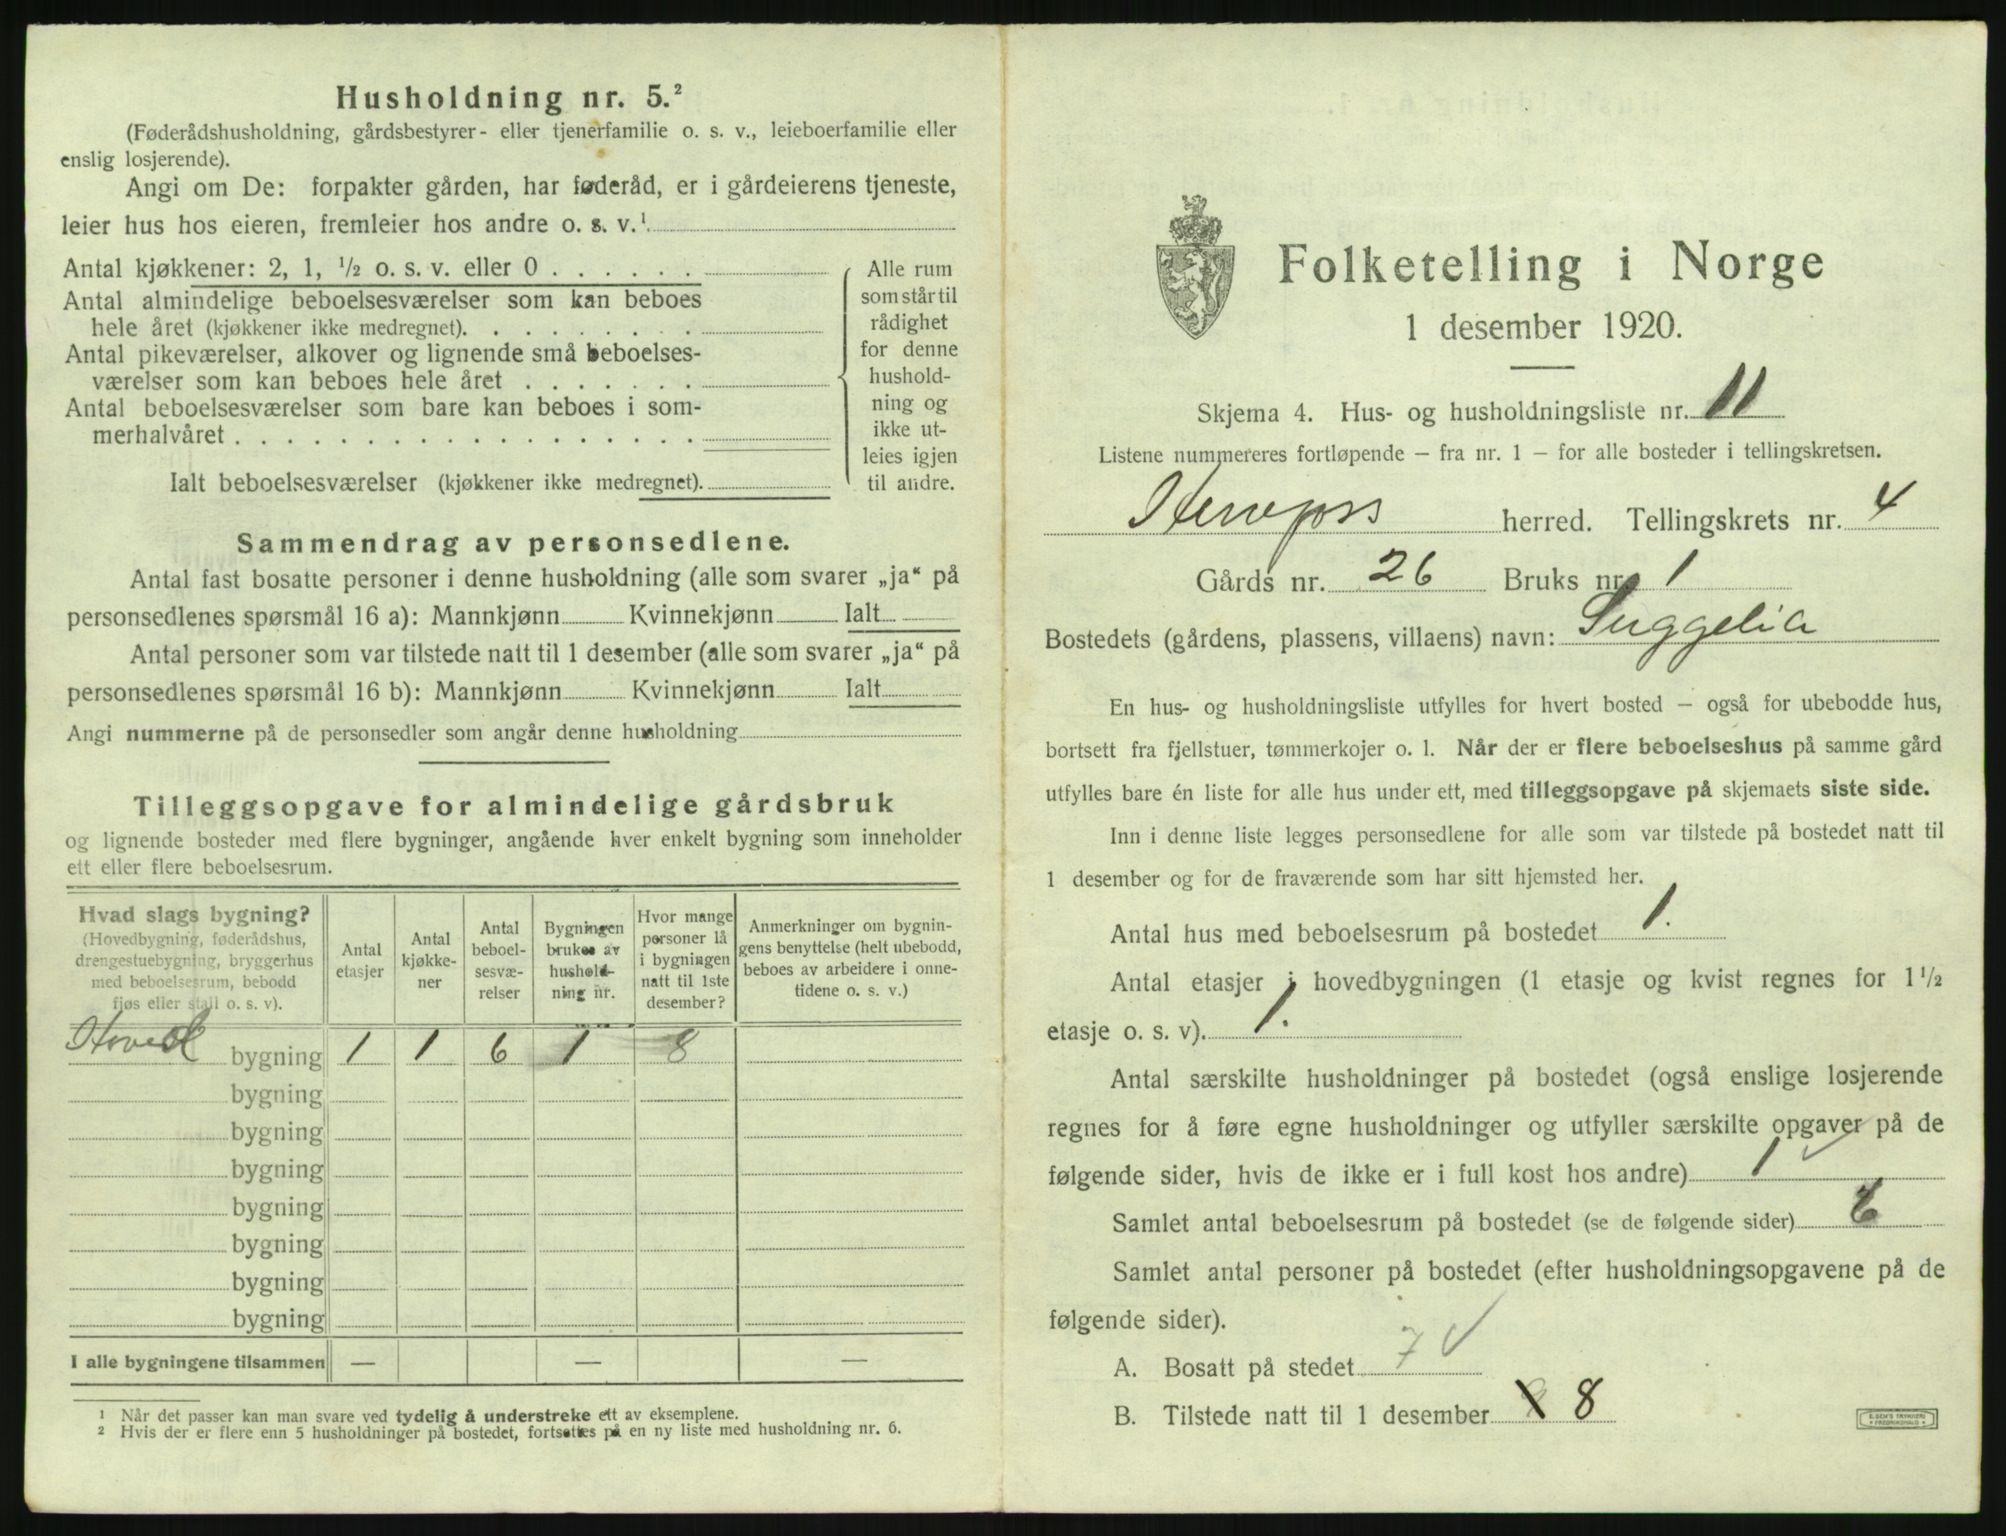 Husholdning nr. 5.²
(Føderådshusholdning, gårdsbestyrer- eller tjenerfamilie o. s. v., leieboerfamilie eller
enslig losjerende).
Angi om De: forpakter gården, har føderåd, er i gårdeierens tjeneste,
leier hus hos eieren, fremleier hos andre o. s. v.¹
Antal kjøkkener: 2, 1, ½ o. s. v. eller 0
Antal almindelige beboelsesværelser som kan beboes
hele året (kjøkkener ikke medregnet).
Antal pikeværelser, alkover og lignende små beboelses-
værelser som kan beboes hele året
Antal beboelsesværelser som bare kan beboes i som-
merhalvåret
Ialt beboelsesværelser (kjøkkener ikke medregnet).
Alle rum
som står til
rådighet
for denne
hushold-
ning og
ikke ut-
leies igjen
til andre.
Sammendrag av personsedlene.
Antal fast bosatte personer i denne husholdning (alle som svarer „ja“ på
personsedlenes spørsmål 16 a): Mannkjønn Kvinnekjønn Ialt
Antal personer som var tilstede natt til 1 desember (alle som svarer „ja“ på
personsedlenes spørsmål 16 b): Mannkjønn Kvinnekjønn Ialt
Angi nummerne på de personsedler som angår denne husholdning
Tilleggsopgave for almindelige gårdsbruk
og lignende bosteder med flere bygninger, angående hver enkelt bygning som inneholder
ett eller flere beboelsesrum.
Hvad slags bygning?
(Hovedbygning, føderådshus,
drengestuebygning, bryggerhus
med beboelsesrum, bebodd
fjøs eller stall o. s. v).
Antal
etasjer
Antal
kjøkke-
ner
Antal
beboel-
sesvæ-
relser
Bygningen
brukes av
hushold-
ning nr.
Hvor mange
personer lå
i bygningen
natt til 1ste
desember?
Anmerkninger om bygnin-
gens benyttelse (helt ubebodd,
beboes av arbeidere i onne-
tidene o. s. v.)
Hoved bygning 1 1 6 1 8
bygning
bygning
bygning
bygning
bygning
bygning
bygning
I alle bygningene tilsammen — — —
¹ Når det passer kan man svare ved tydelig å understreke ett av eksemplene.
² Hvis der er flere enn 5 husholdninger på bostedet, fortsettes på en ny liste med husholdning nr. 6.
Folketelling i Norge
1 desember 1920.
Skjema 4. Hus- og husholdningsliste nr. 11
Listene nummereres fortløpende — fra nr. 1 — for alle bosteder i tellingskretsen.
herred. Tellingskrets nr. 4
Gårds nr. 26 Bruks nr. 1
Bostedets (gårdens, plassens, villaens) navn: Suggelia
En hus- og husholdningsliste utfylles for hvert bosted — også for ubebodde hus,
bortsett fra fjellstuer, tømmerkojer o. l. Når der er flere beboelseshus på samme gård
utfylles bare én liste for alle hus under ett, med tilleggsopgave på skjemaets siste side.
Inn i denne liste legges personsedlene for alle som var tilstede på bostedet natt til
1 desember og for de fraværende som har sitt hjemsted her.
Antal hus med beboelsesrum på bostedet 1.
Antal etasjer i hovedbygningen (1 etasje og kvist regnes for 1½
etasje o. s. v). 1.
Antal særskilte husholdninger på bostedet (også enslige losjerende
regnes for å føre egne husholdninger og utfyller særskilte opgaver på de
følgende sider, hvis de ikke er i full kost hos andre) 1 ✓
Samlet antal beboelsesrum på bostedet (se de følgende sider)
Samlet antal personer på bostedet (efter husholdningsopgavene på de
følgende sider).
A. Bosatt på stedet 7 ✓
B. Tilstede natt til 1 desember 8